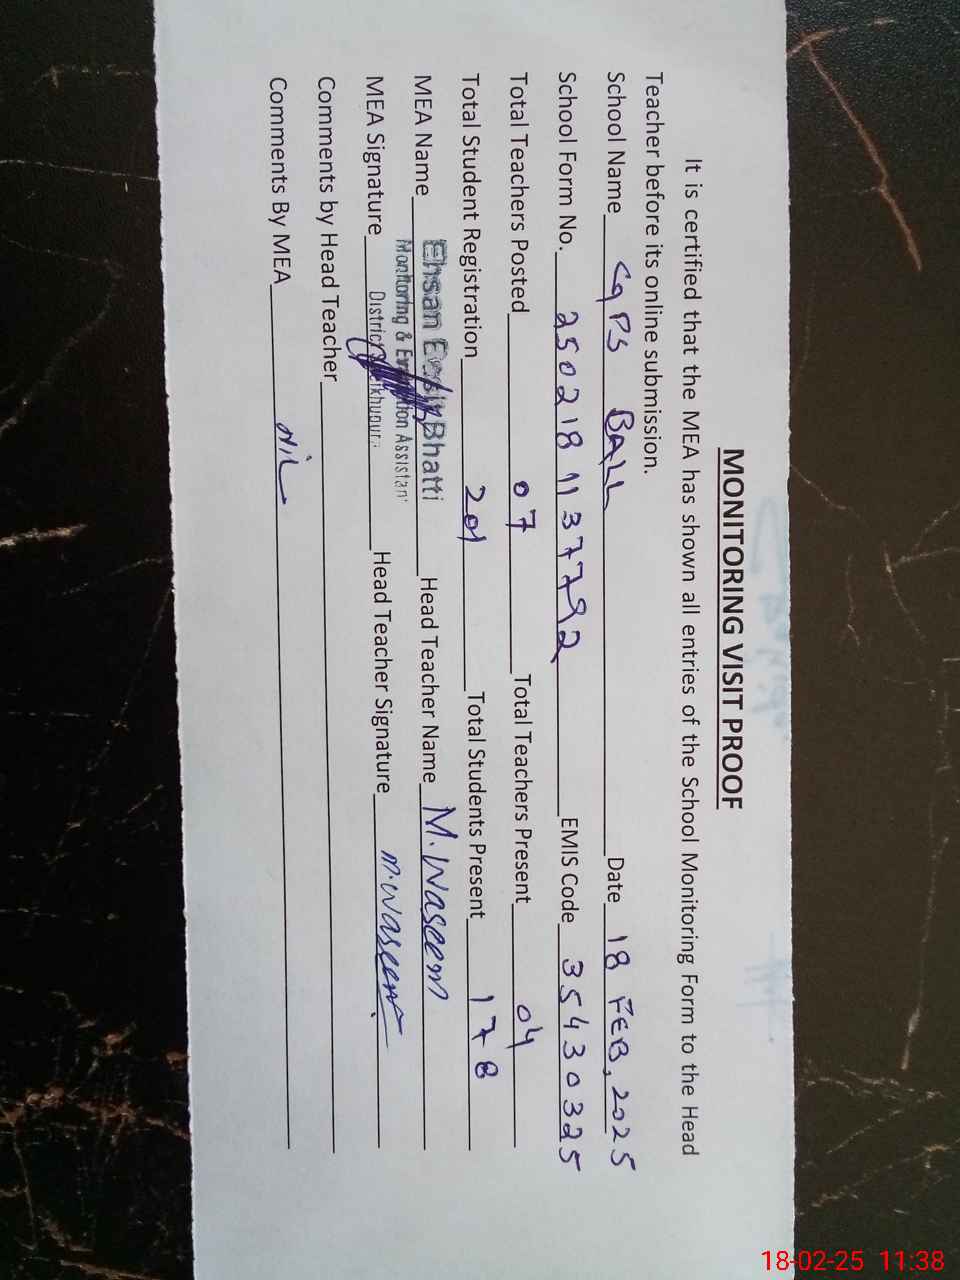 MONITORING VISIT PROOF
It is certified that the MEA has shown all entries of the School Monitoring Form to the Head
Teacher before its online submission.
School Name GPS BALL Date 18 FEB, 2025
School Form No. 250218113792 EMIS Code 35430325
Total Teachers Posted 07 Total Teachers Present 04
Total Student Registration 201 Total Students Present 178
MEA Name Ehsan Bhatti Head Teacher Name M. Waseem
Monitoring & Assistan
MEA Signature District Head Teacher Signature M. Waseem
Comments by Head Teacher
Comments By MEA Nil
18-02-25 11:38